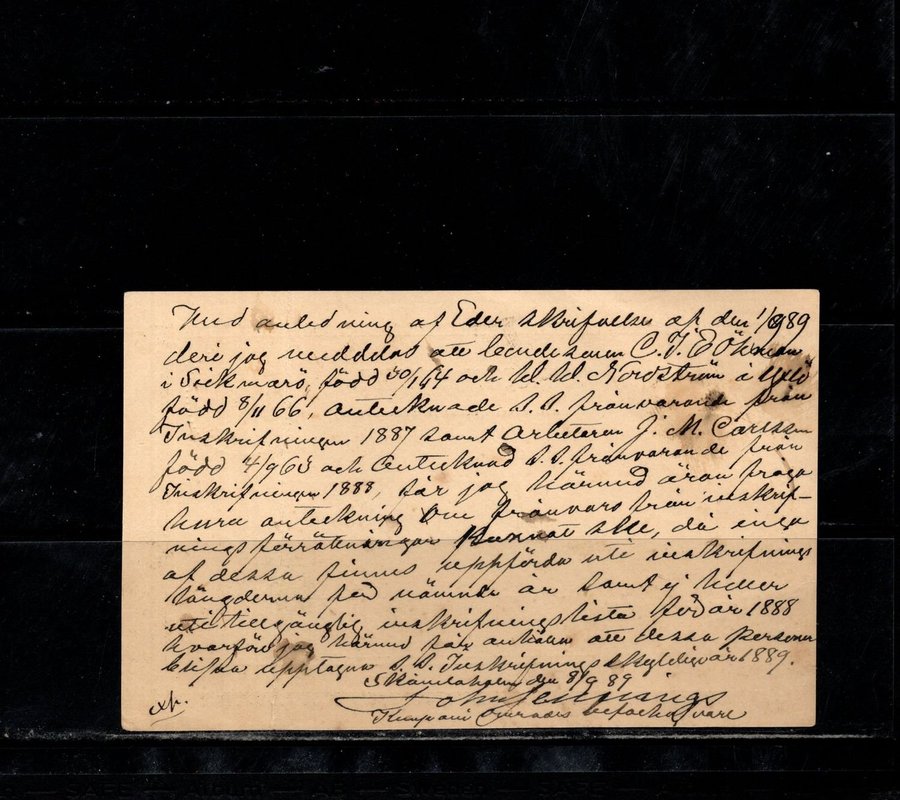 Med anledning af Eder skrifvelse af den 1/9 89
deri jag meddelas att C. J. E Ökman
i Sickmarö, född 30/1 64 och W. W. Nordström i
född 8/11 66, antecknade s. s. frånvarande från
Inskrifningen 1887 samt Arbetaren J. M. Carlsson
född 4/9 65 och antecknad s. s. frånvarande från
Inskrifningen 1888, får jag härmed äran fråga
huru anteckning om frånvaro från inskrif-
ningsförrättningar kunnat ske, då inga
af dessa finnes uppförda uti inskrifnings
längderna för nämnde år samt ej heller
uti tillgänglig inskrifningslista för år 1888
hvarför jag härmed får anhålla att dessa personer
blifva upptagna s. s. Inskrifningsskyldige år 1889.
Skånelaholm den 8/9 89
John Jennings
Kompani Områdes befälhafvare